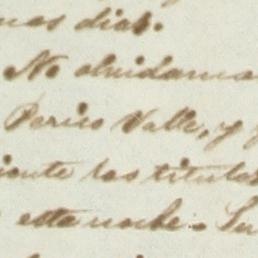 nos dias.
No olvidamos
Perico Valle, y
iente los titula
esta noche. Su